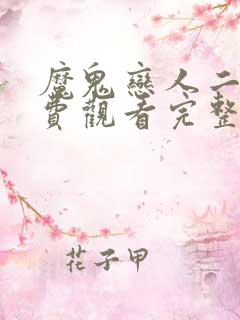 魔鬼戀人二
費觀看完整
花子甲